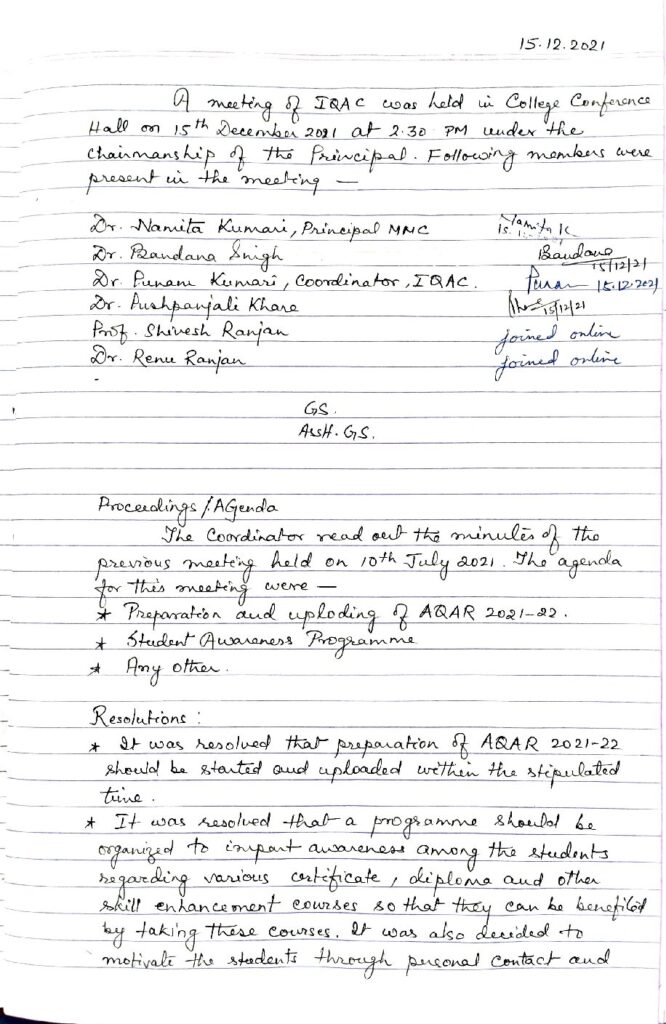 15.12.2021
A meeting of IQAC was held in College Conference
Hall on 15th December 2021 at 2.30 PM under the
chairmanship of the Principal. Following members were
present in the meeting —
Dr. Namita Kumari, Principal MMC Namita K
15.1
Dr. Bandana Singh Bandana
15/12/21
Dr. Punam Kumari, Coordinator, IQAC. Punam 15.12.2021
Dr. Pushpanjali Khare 15/12/21
Prof. Shivesh Ranjan joined online
Dr. Renu Ranjan joined online
GS.
Asst. GS.
Proceedings / AGenda
The Coordinator read out the minutes of the
previous meeting held on 10th July 2021. The agenda
for this meeting were —
* Preparation and uploding of AQAR 2021-22.
* Student Awareness Programme
* Any other.
Resolutions :
* It was resolved that preparation of AQAR 2021-22
should be started and uploaded within the stipulated
time.
* It was resolved that a programme should be
organized to impart awareness among the students
regarding various certificate, diploma and other
skill enhancement courses so that they can be benefited
by taking these courses. It was also decided to
motivate the students through personal contact and